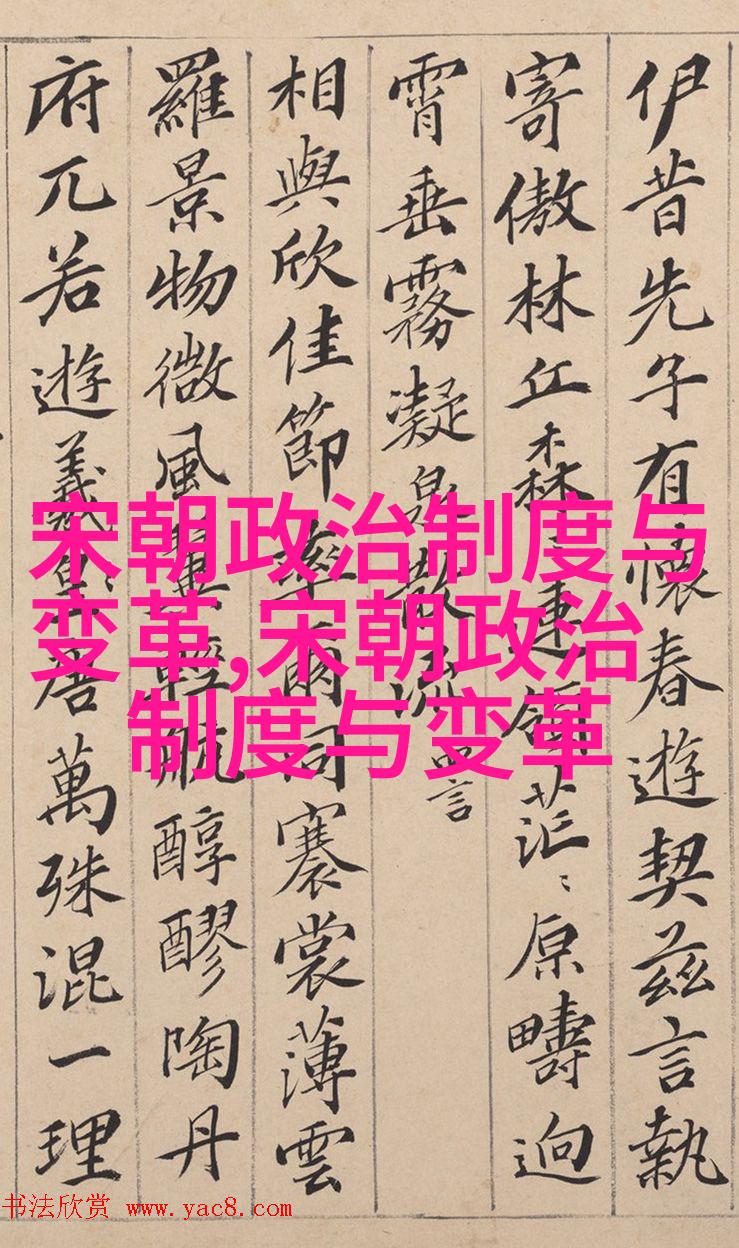 宋朝政治制度与
变革,宋朝政治
制度与变革
伊昔先子有懷春遊契茲言執
寄傲林丘森連領茫〻原疇迥
霄垂霧凝泉散流 四言
相與欣佳節率爾同褰裳薄雲
羅景物微風翼輕航醇醪陶丹
府兀若遊羲唐萬殊混一理
书法欣赏 www.yac8.com